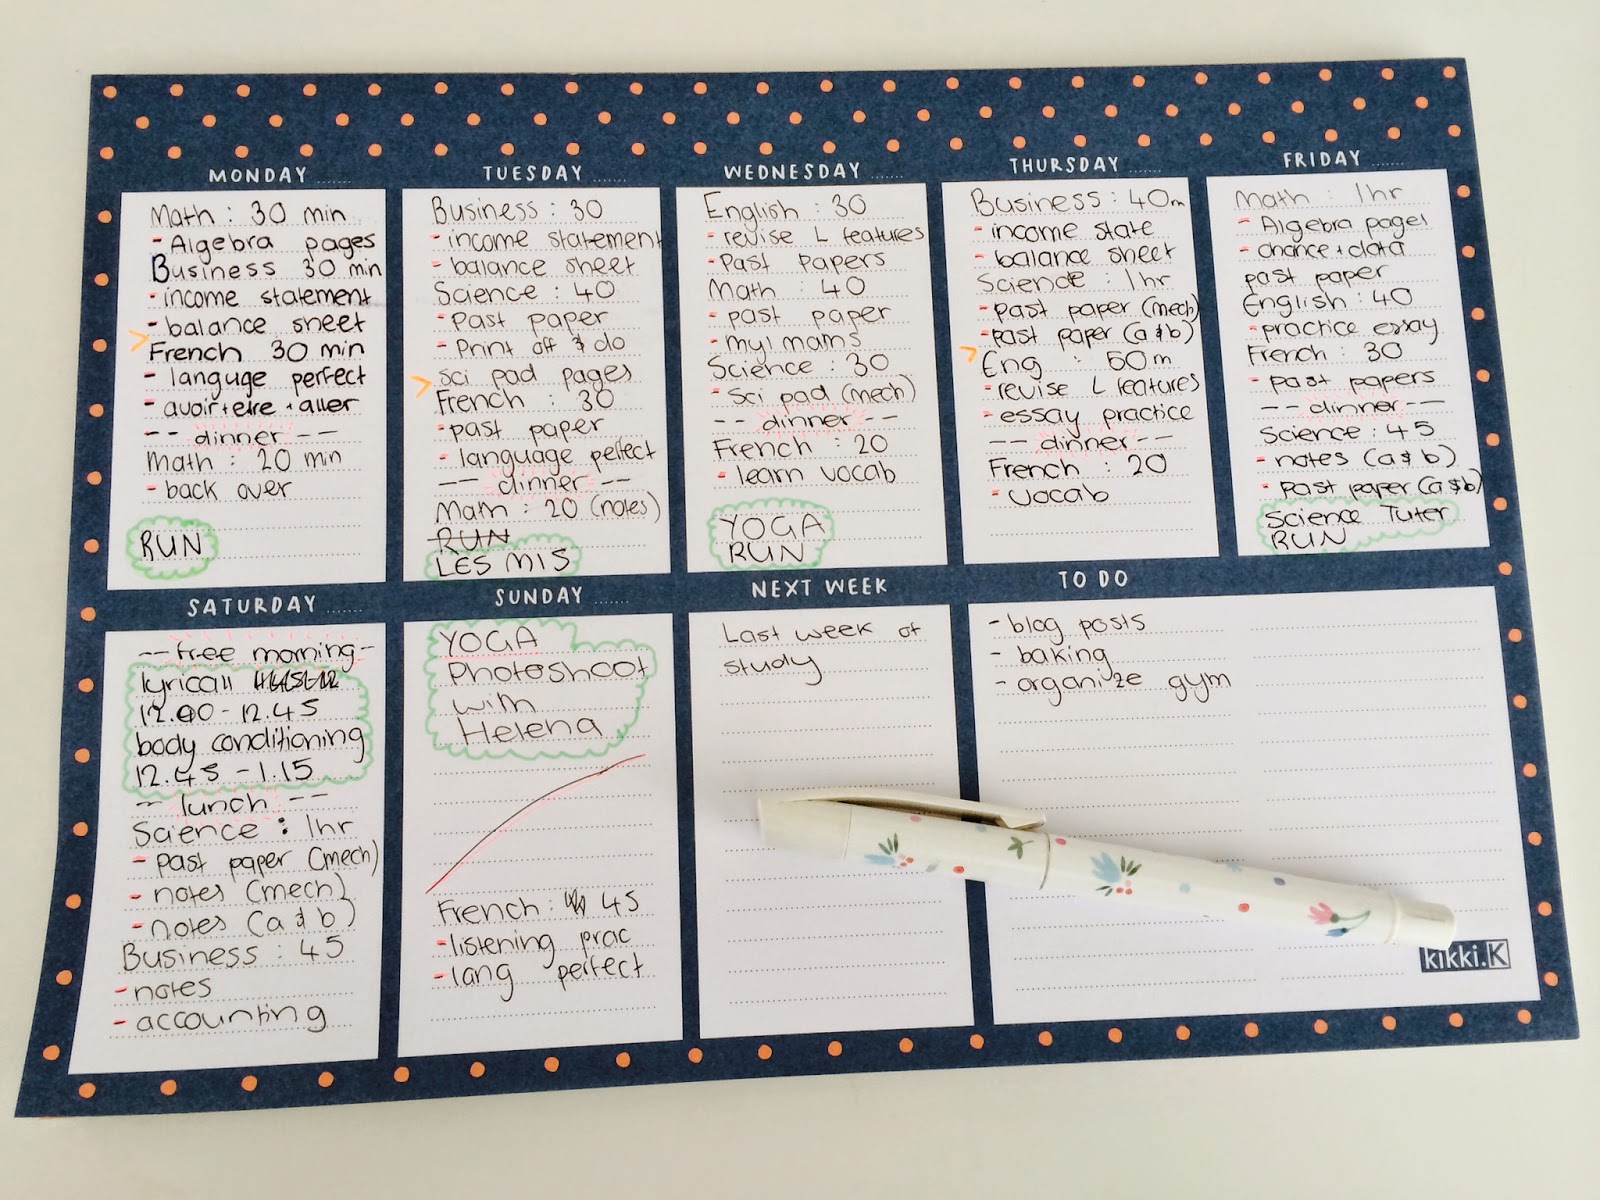 MONDAY
Math : 30 min
- Algebra pages
Business 30 min
- income statement
- balance sheet
French 30 min
- languge perfect
- avoir + etre + aller
-- dinner --
Math : 20 min
- back over
RUN
TUESDAY
Business : 30
- income statement
- balance sheet
Science : 40
- Past paper
- Print off & do
sci pad pages
French : 30
- past paper
- language perfect
-- dinner --
Math : 20 (notes)
RUN
LES MIS
WEDNESDAY
English : 30
- revise L features
- Past Papers
Math : 40
- past paper
- my mams
Science : 30
- Sci pad (mech)
-- dinner --
French : 20
- learn vocab
YOGA
RUN
THURSDAY
Business : 40m
- income state
- balance sheet
Science : 1hr
- past paper (mech)
- past paper (a & b)
Eng : 50m
- revise L features
- essay practice
-- dinner --
French : 20
- vocab
FRIDAY
Math : 1hr
- Algebra pages
- chance + data
past paper
English : 40
- practice essay
French : 30
- past papers
-- dinner --
Science : 45
- notes (a & b)
- past paper (a & b)
Science Tuter
RUN
SATURDAY
-- free morning -
lyricall
12.00 - 12.45
body conditioning
12.45 - 1.15
-- lunch --
Science : 1hr
- past paper (mech)
- notes (mech)
- notes (a & b)
Business : 45
- notes
- accounting
SUNDAY
YOGA
Photoshoot
with
Helena
French : 45
- listening prac
- lang perfect
NEXT WEEK
Last week of
study
TO DO
- blog posts
- baking
- organize gym
kikki.K